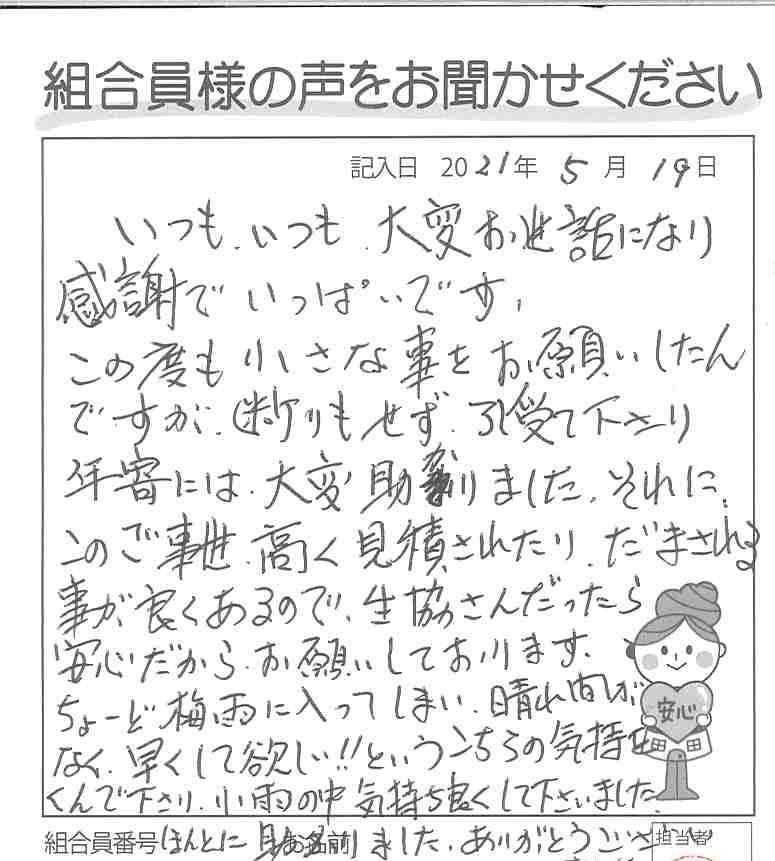 組合員様の声をお聞かせください
記入日 2021年 5月 19日
いつも、いつも、大変お世話になり
感謝でいっぱいです、
この度も小さな事をお願いしたん
ですが、断りもせず、引受て下さり
年寄には、大変助かりました、それに、
このご事世、高く見積されたり、だまされる
事が良くあるので、生協さんだったら
安心だから、お願いしております、
ちょーど梅雨に入ってしまい、晴れ間が
なく、早くして欲しい!!というこちらの気持を
安心
くんで下さり、小雨の中気持ち良くして下さいました、
組合員番号 ほんとに お名前 助かりました、ありがとうござ 担当者